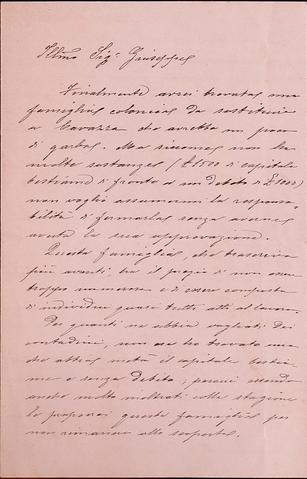 Illmo Sig. Giuseppe
Finalmente avrei trovata una
famiglia colonica da sostituire
a Cavazza che avrebbe un poco
di garbo. Ma siccome non ha
molte sostanze (£1500 di capitale
bestiame di fronte a un debito di £1000)
non voglio assumermi la responsa-
bilità di fermarla senza averne
avuta la sua approvazione.
Questa famiglia, che trascrivo
più avanti, ha il pregio di non essere
troppo numerosa e d'essere composta
d'individui quasi tutti atti al lavoro.
Per quanti ne abbia vagliati dei
contadini, non ne ho trovato uno
che abbia metà il capitale bestia-
me e senza debito, perciò essendo
anche molto inoltrati colla stagione
le proporrei questa famiglia per
non rimanere allo scoperto.